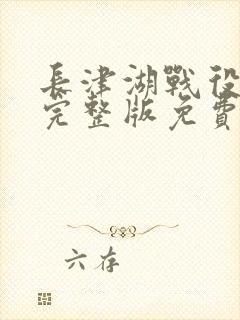 長津湖戰役
完整版免費
六存